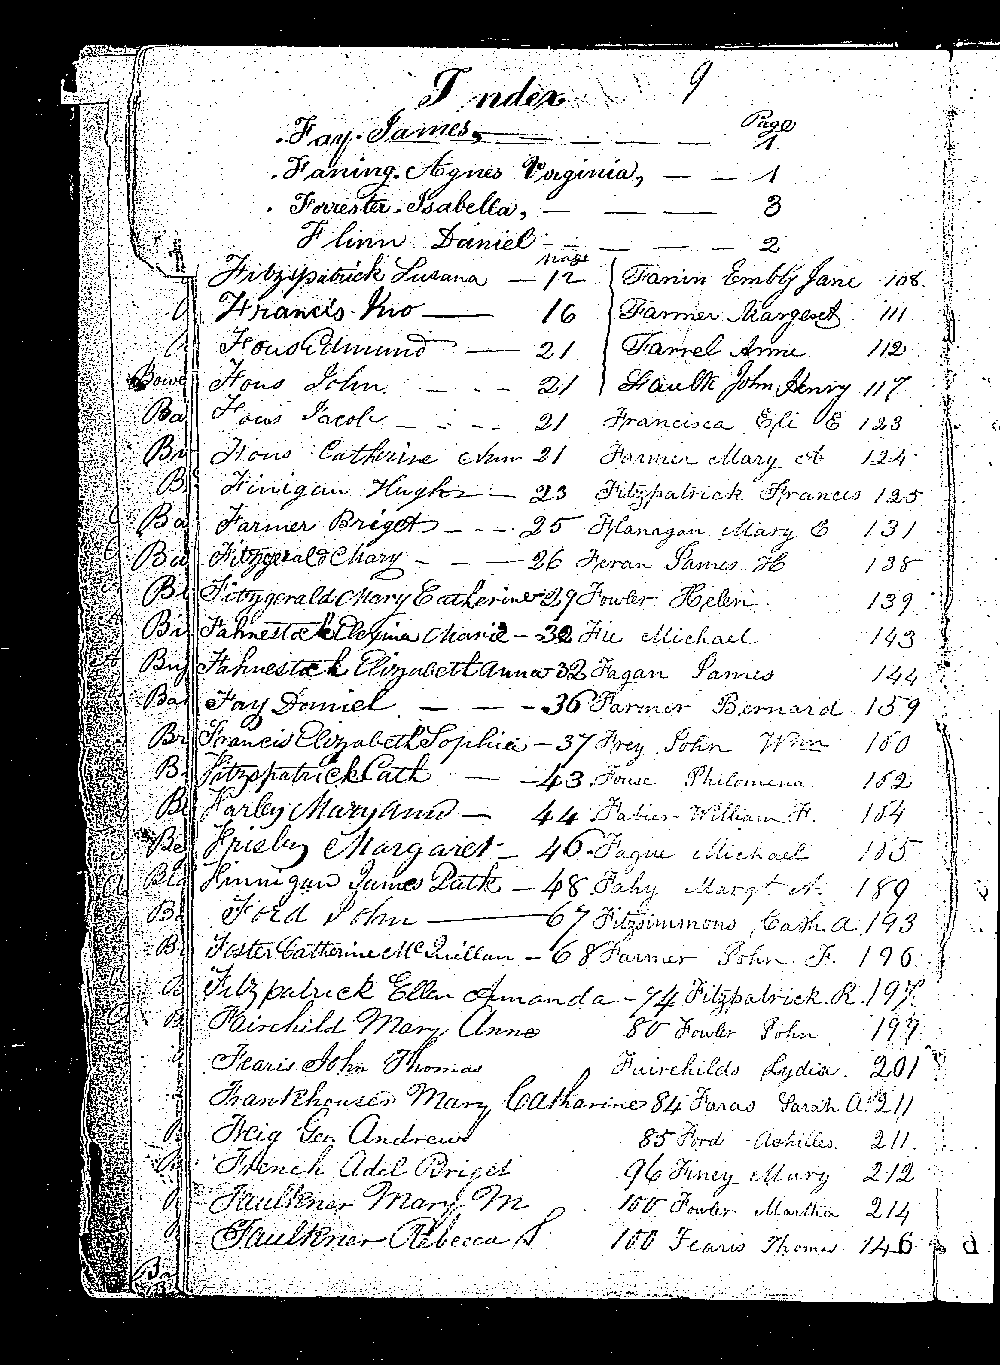 Index 9
Page
Fay James, 1
Faning Agnes Virginia, 1
Forrester Isabella, 3
Flinn Daniel 2
page
Fitzspatrick Susana 12 Fanin Embly Jane 108
Francis Jno 16 Farmer Margeret 111
Fous Edmund 21 Farrel Anne 112
Bowe Fous John 21 Faulk John Henry 117
Ba Fous Jacob 21 Francisca Eli E 123
Br Fous Catherine Ann 21 Farmer Mary A 124
B Finigan Hugh 23 Fitzpatrick Frances 125
Ba Farmer Briget 25 Flanagan Mary E 131
Ba Fitzgerald Mary 26 Feran James H 138
B Fitzgerald Mary Catherine 29 Fowler Helen 139
Bi Fahnestock Marie 32 Fie Michael 143
Fahnestock Elizabeth Anna 32 Fagan James 144
Ba Fay Daniel 36 Farmer Bernard 159
Br Francis Elizabeth Sophia 37 Frey John Wm 160
B Fitzpatrick Cath 43 Fouse Philomena 162
B Farley Mary Ann 44 William F. 164
Be Frisby Margaret 46 Fague Michael 165
Bla Finnigan James Patk 48 Fahy Margt A. 189
B Ford John 67 Fitzsimmons Cath A. 193
B Foster Catherine McQuillan 68 Farmer John F. 196
Fitzpatrick Ellen Amanda 74 Fitzpatrick R. 197
B Fairchild Mary Anne 80 Fowler John 199
Fearis John Thomas Fairchilds Lydia. 201
Frankhouser Mary Catharine 84 Faras Sarah A. 211
Feig Geo Andrew 85 Ford Achilles. 211
French Adel Briget 96 Finey Mary 212
Faulkner Mary M 100 Fowler Martha 214
Faulkner Rebecca S 100 Fearis Thomas 146